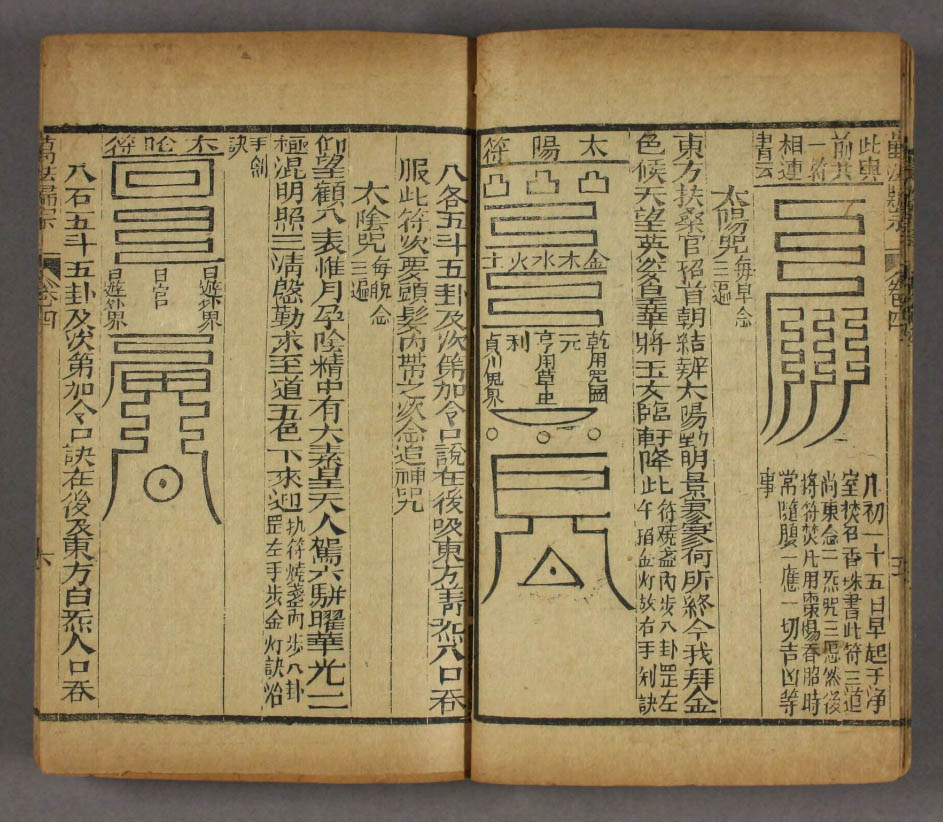 此與
前共
一符
相連
書云
凡初一十五日早起于淨
室
香
書此符三道
尚東念二炁咒三
然後
將符焚
用棗湯吞
時
常隨
應一切吉凶等
事
太陽咒
每早念
三遍
東方扶桑官
首朝結
太陽
明景
何所終今我拜金
色候天望英
皇華將玉女臨軒降此
符燒盞內步八卦罡左
午
金灯
右手剑訣
太陽符
金木水火土
乾用
國
元
亨用草
利
貞
界
八各五斗五卦及次第加令口說在後吸東方青炁八口吞
服此符次要頭髮內帶之次念追神咒
太陰咒
每晚念
三遍
仰望顧八表惟月孕陰精中有大素皇天人駕六駢曜華光二
極混明照三清慇勤求至道五色下來迎
执符燒盞內步八卦
罡左手步金灯訣
手劍
訣
太陰符
日遊外界
日宮
日遊外界
八石五斗五卦及次第加令口訣在後及東方白炁人口吞
萬法歸宗
卷四
六